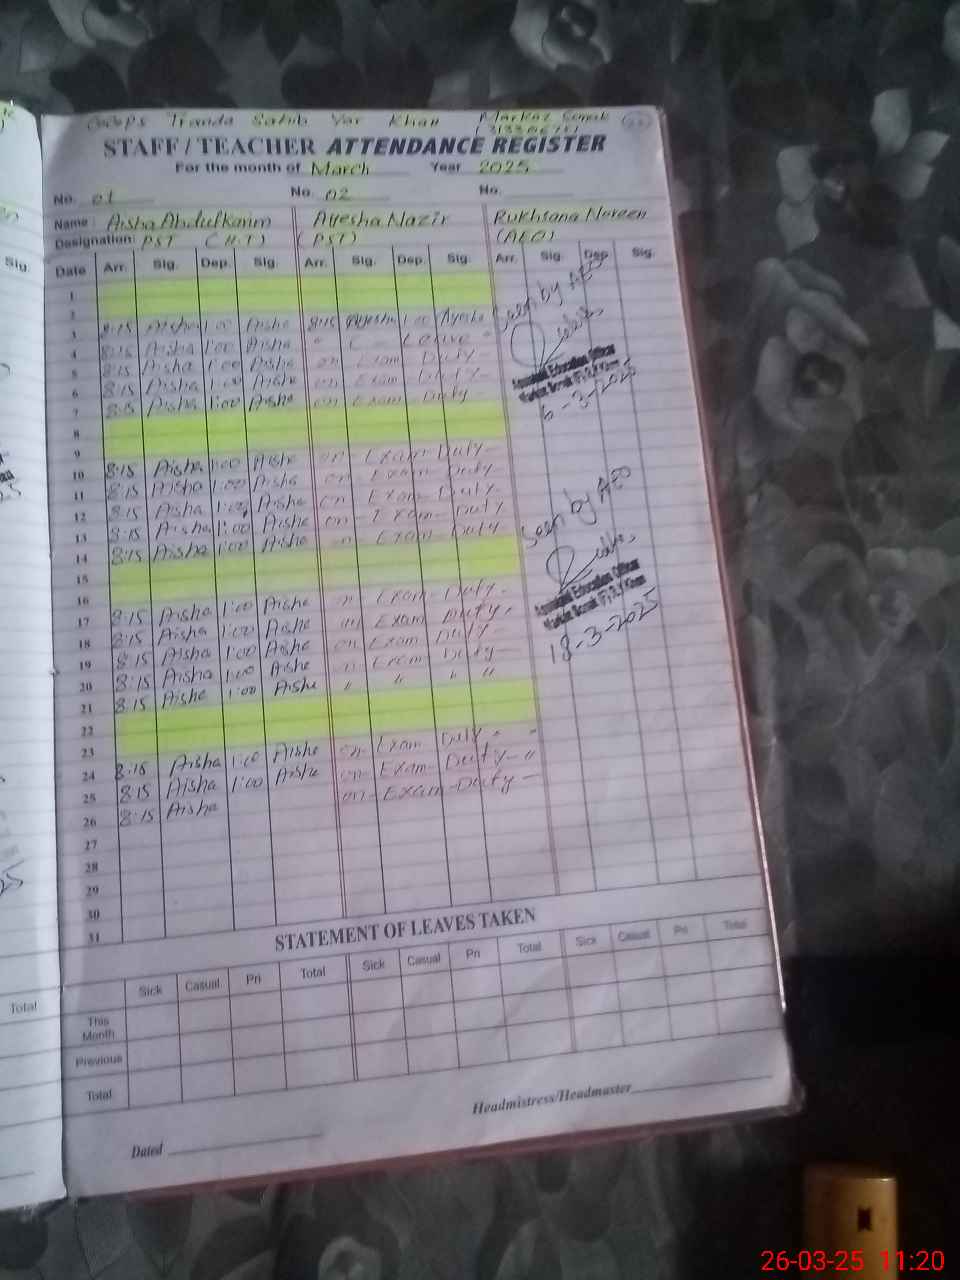 GGCPS Tranda Sahib Yar Khan Markaz Sonak
STAFF / TEACHER ATTENDANCE REGISTER
For the month of March Year 2025
No. 01 No. 02 No.
Name: Aisha Abdulkarim Ayesha Nazir Rukhsana Noreen
Designation: PST (H.T) (PST) (AEO)
Date Arr. Sig. Dep. Sig. Arr. Sig. Dep. Sig. Arr. Sig. Dep. Sig.
1
2
3 8:15 Aisha 1:00 Aisha 8:15 Ayesha 1:00 Ayesha
4 8:15 Aisha 1:00 Aisha Leave
5 8:15 Aisha 1:00 Aisha on Exam Duty
6 8:15 Aisha 1:00 Aisha on Exam Duty
7 8:15 Aisha 1:00 Aisha on Exam Duty
8
9
10 8:15 Aisha 1:00 Aisha on Exam Duty
11 8:15 Aisha 1:00 Aisha on Exam Duty
12 8:15 Aisha 1:00 Aisha on Exam Duty
13 8:15 Aisha 1:00 Aisha on Exam Duty
14 8:15 Aisha 1:00 Aisha on Exam Duty
15
16
17 8:15 Aisha 1:00 Aisha on Exam Duty
18 8:15 Aisha 1:00 Aisha on Exam Duty
19 8:15 Aisha 1:00 Aisha on Exam Duty
20 8:15 Aisha 1:00 Aisha on Exam Duty
21 8:15 Aisha 1:00 Aisha " " " "
22
23
24 8:15 Aisha 1:00 Aisha on Exam Duty "
25 8:15 Aisha 1:00 Aisha on Exam Duty "
26 8:15 Aisha on Exam Duty
27
28
29
30
31
Seen by AEO
Assistant Education Officer
6-3-2025
Seen by AEO
Assistant Education Officer
18-3-2025
STATEMENT OF LEAVES TAKEN
Sick Casual Pri Total Sick Casual Pri Total Sick Casual Pri Total
This Month
Previous
Total
Headmistress/Headmaster
Dated
Sig.
Total
26-03-25 11:20